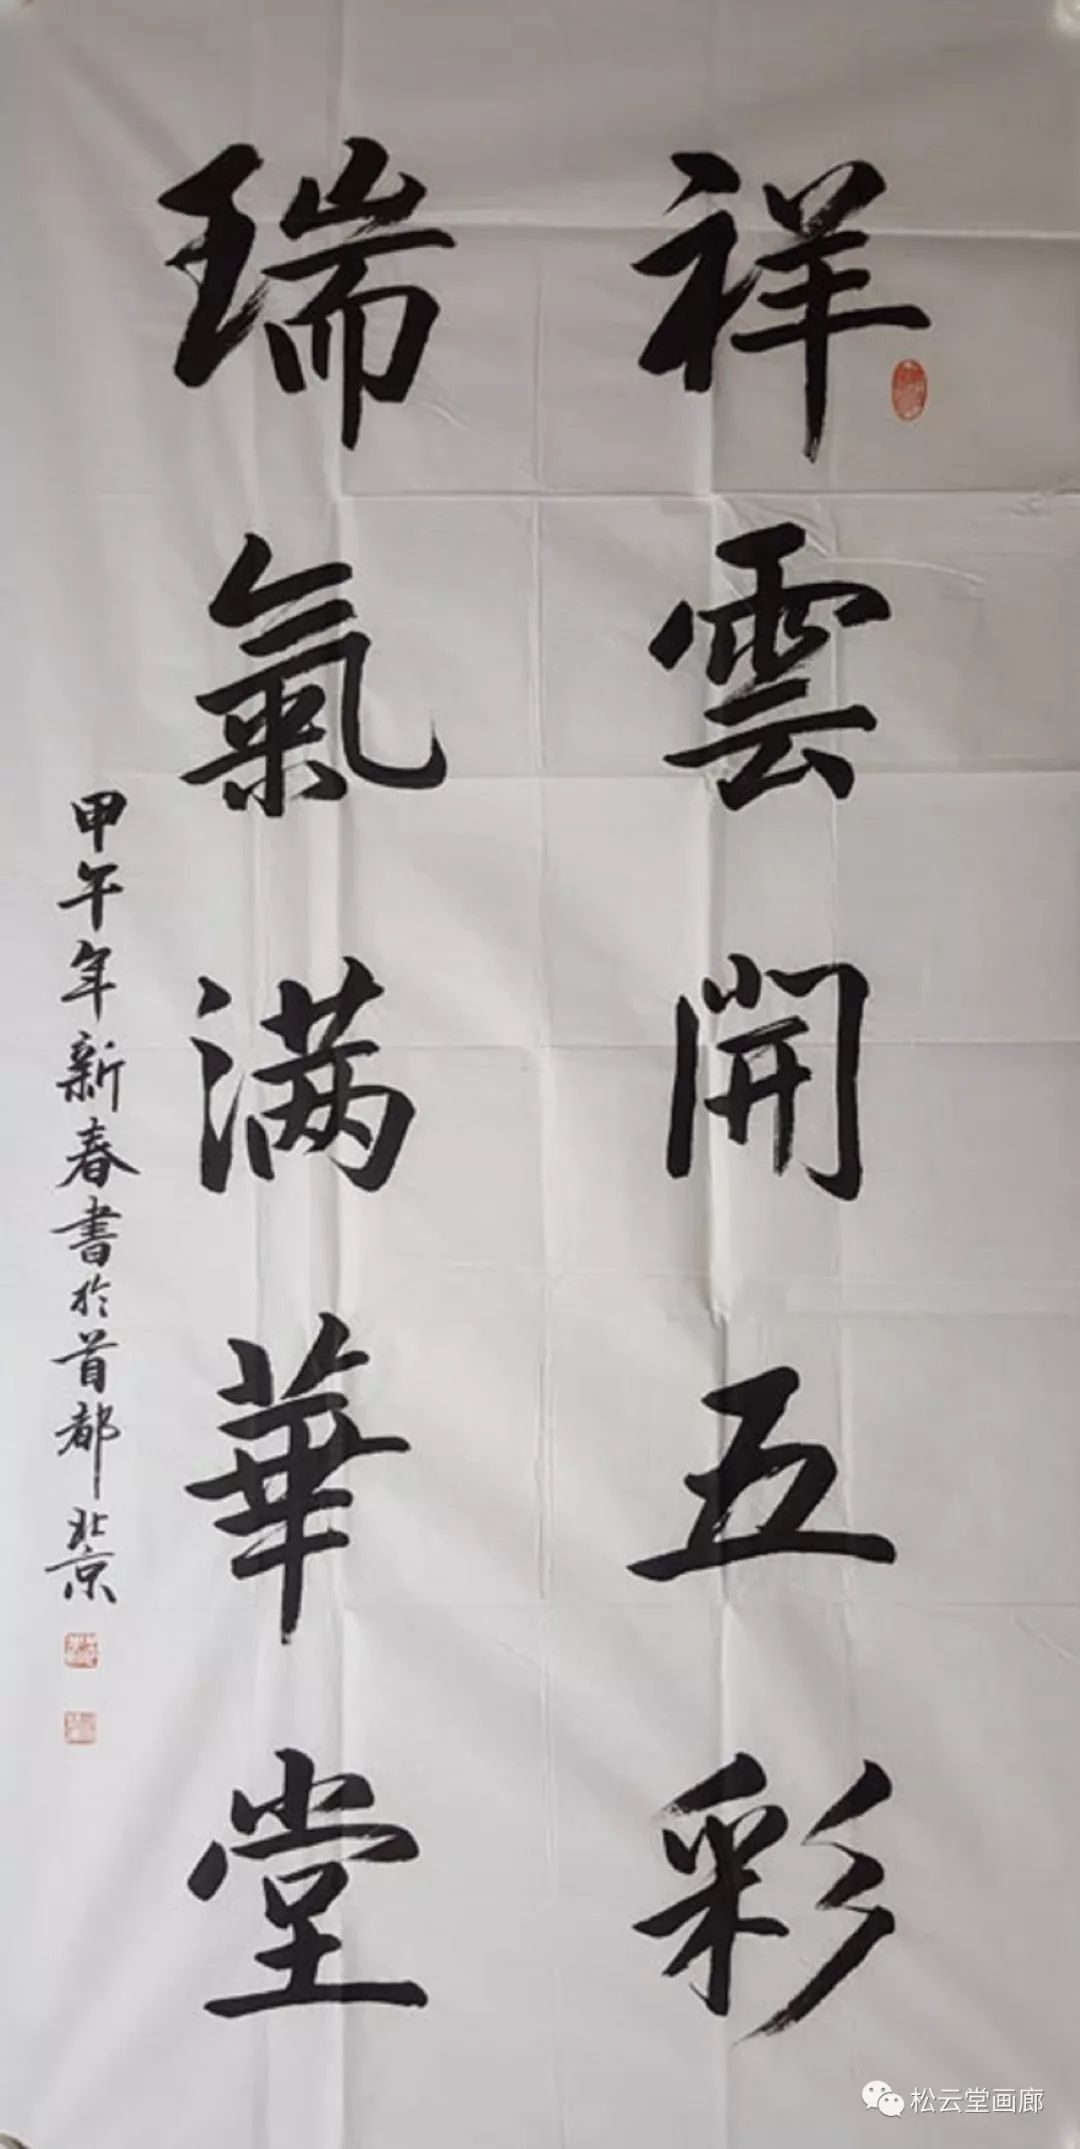 祥雲開五彩
瑞氣满華堂
甲午年新春書於首都北京
松云堂画廊